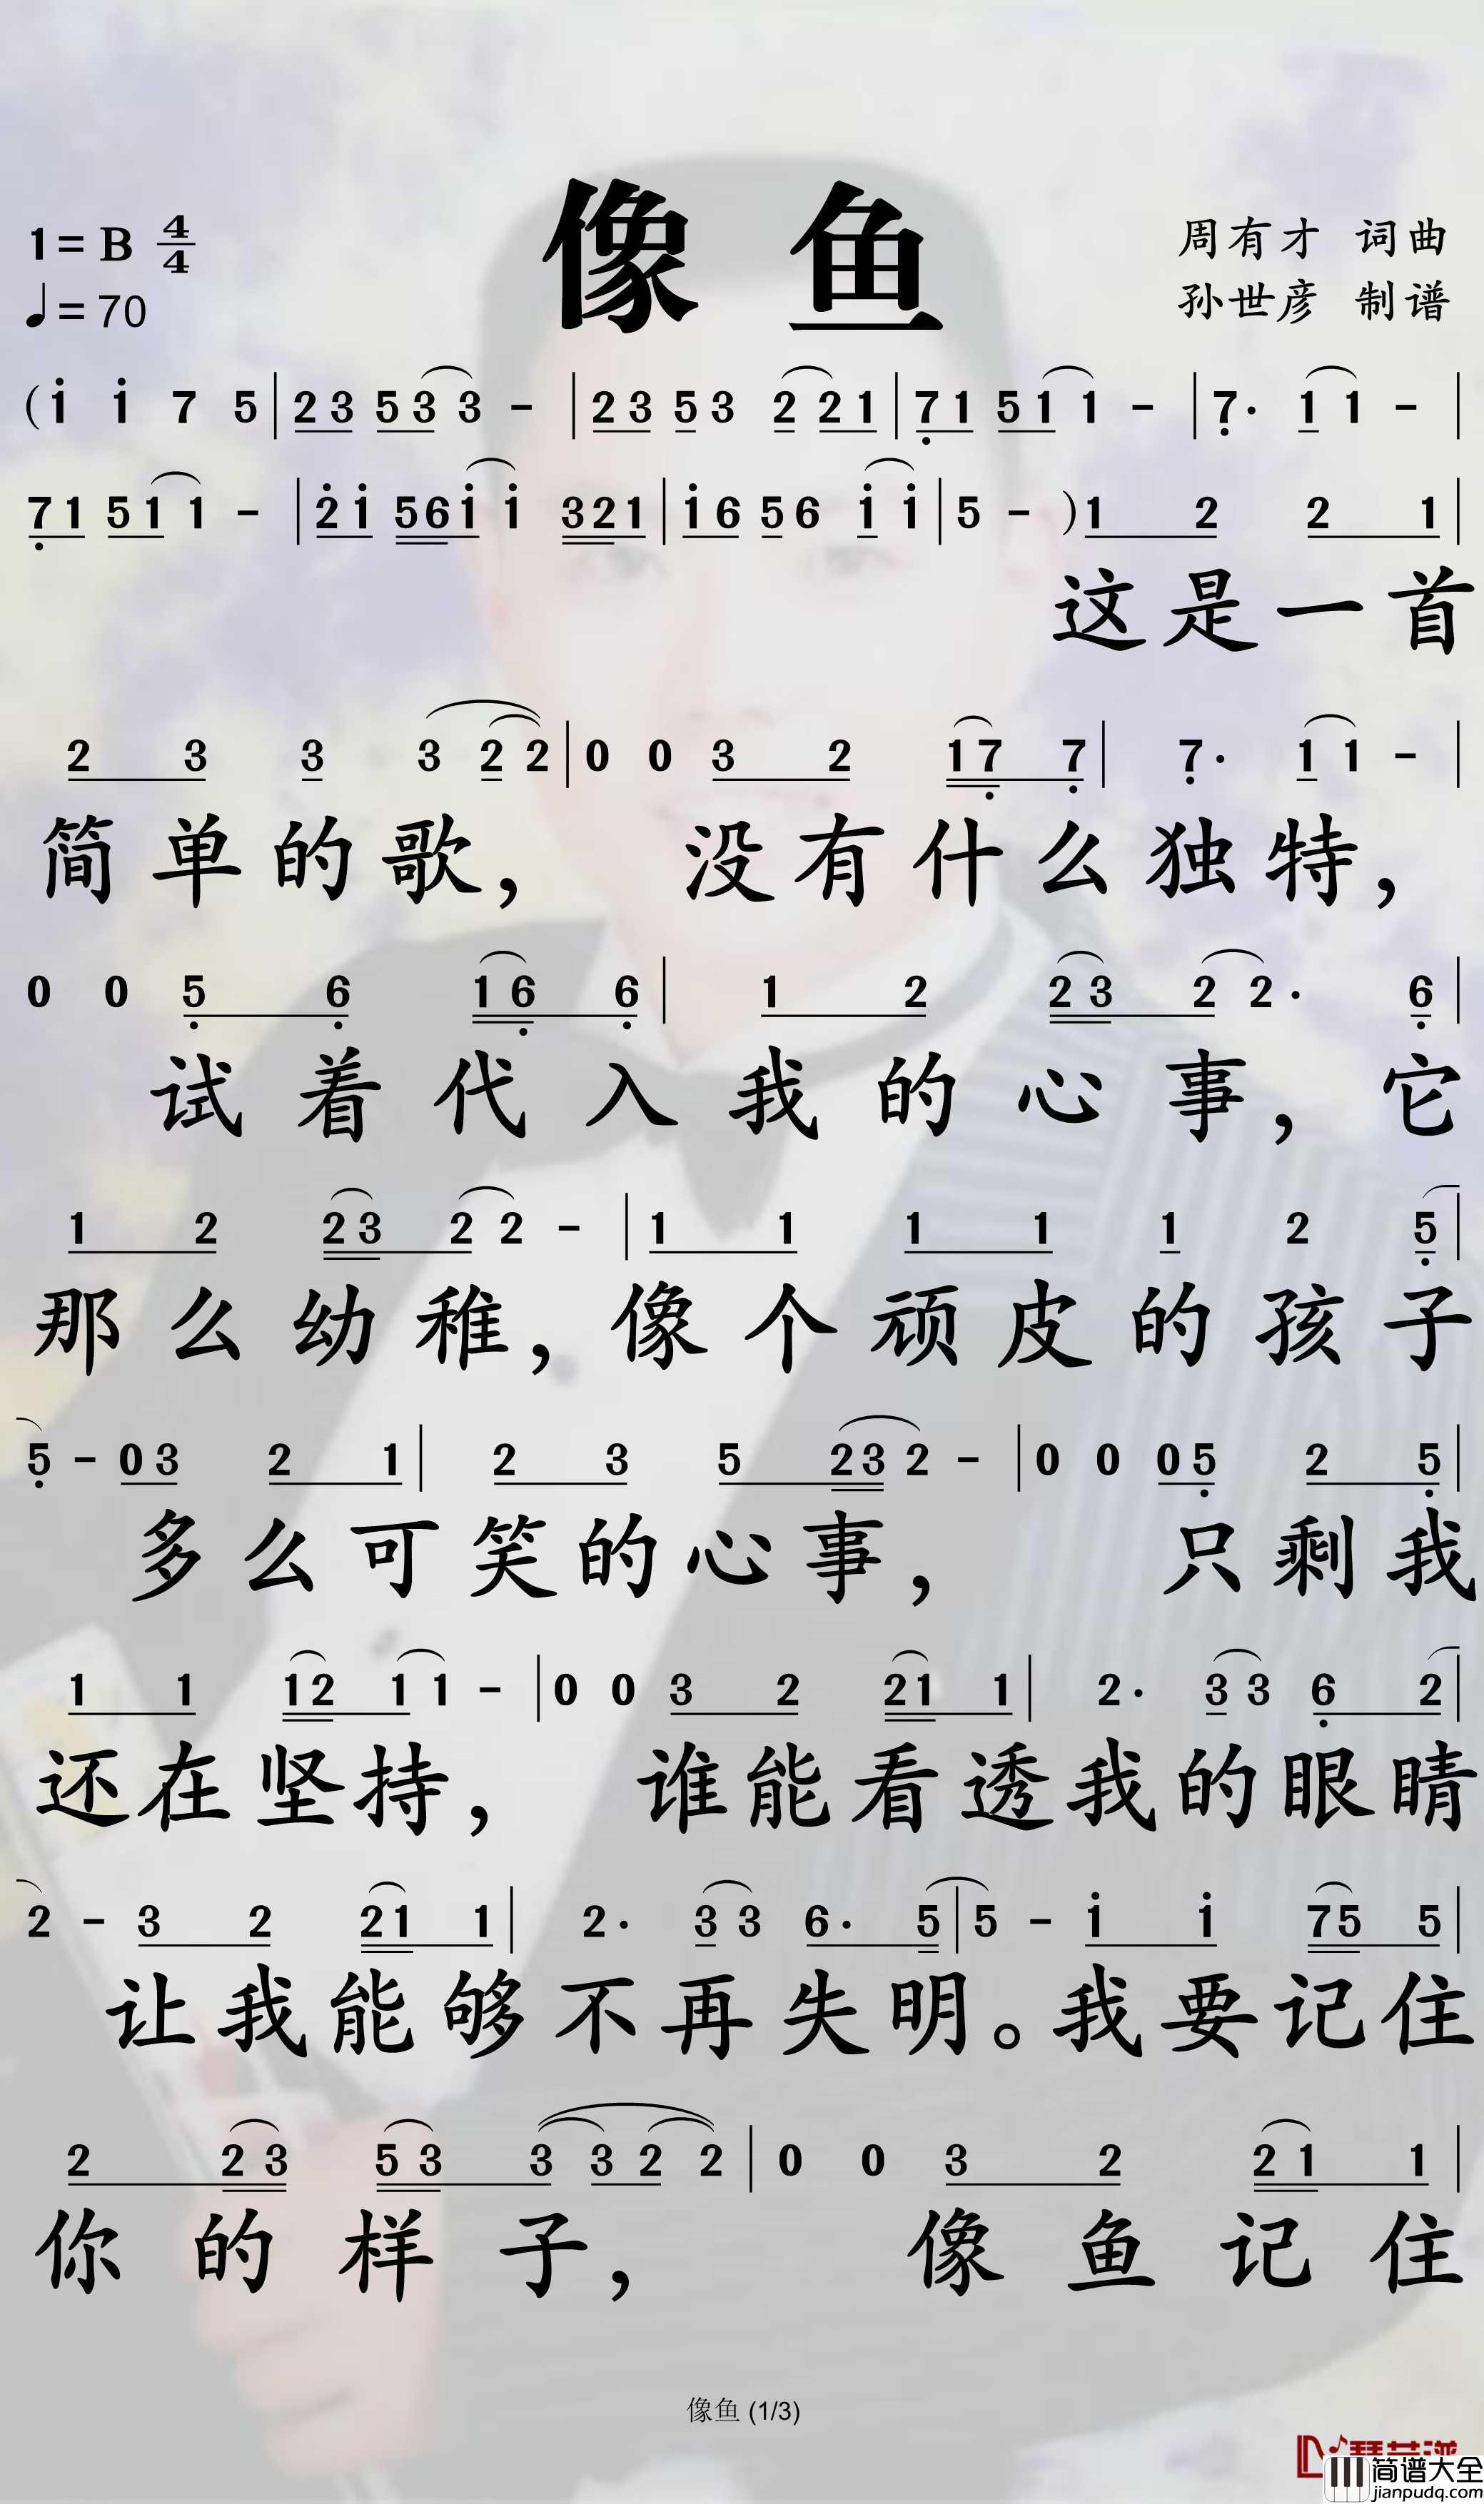 像 鱼
1=B 4/4
♩=70
周有才 词曲
孙世彦 制谱
(i i 7 5|2 3 5 3 3 -|2 3 5 3 2 2 1|7 1 5 1 1 -|7. 1 1 -|
7 1 5 1 1 -|2 i 5 6 i i 3 2 1|i 6 5 6 i i|5 - )1 2 2 1|
这是一首
2 3 3 3 2 2|0 0 3 2 1 7 7|7. 1 1 -|
简单的歌， 没有什么独特，
0 0 5 6 1 6 6|1 2 2 3 2 2. 6|
试着代入我的心事，它
1 2 2 3 2 2 -|1 1 1 1 1 2 5|
那么幼稚，像个顽皮的孩子
5 - 0 3 2 1|2 3 5 2 3 2 -|0 0 0 5 2 5|
多么可笑的心事， 只剩我
1 1 1 2 1 1 -|0 0 3 2 2 1 1|2. 3 3 6 2|
还在坚持， 谁能看透我的眼睛
2 - 3 2 2 1 1|2. 3 3 6. 5|5 - i i 7 5 5|
让我能够不再失明。我要记住
2 2 3 5 3 3 3 2 2|0 0 3 2 2 1 1|
你的样子， 像鱼记住
像鱼 (1/3)
简谱大全
jianpudq.com